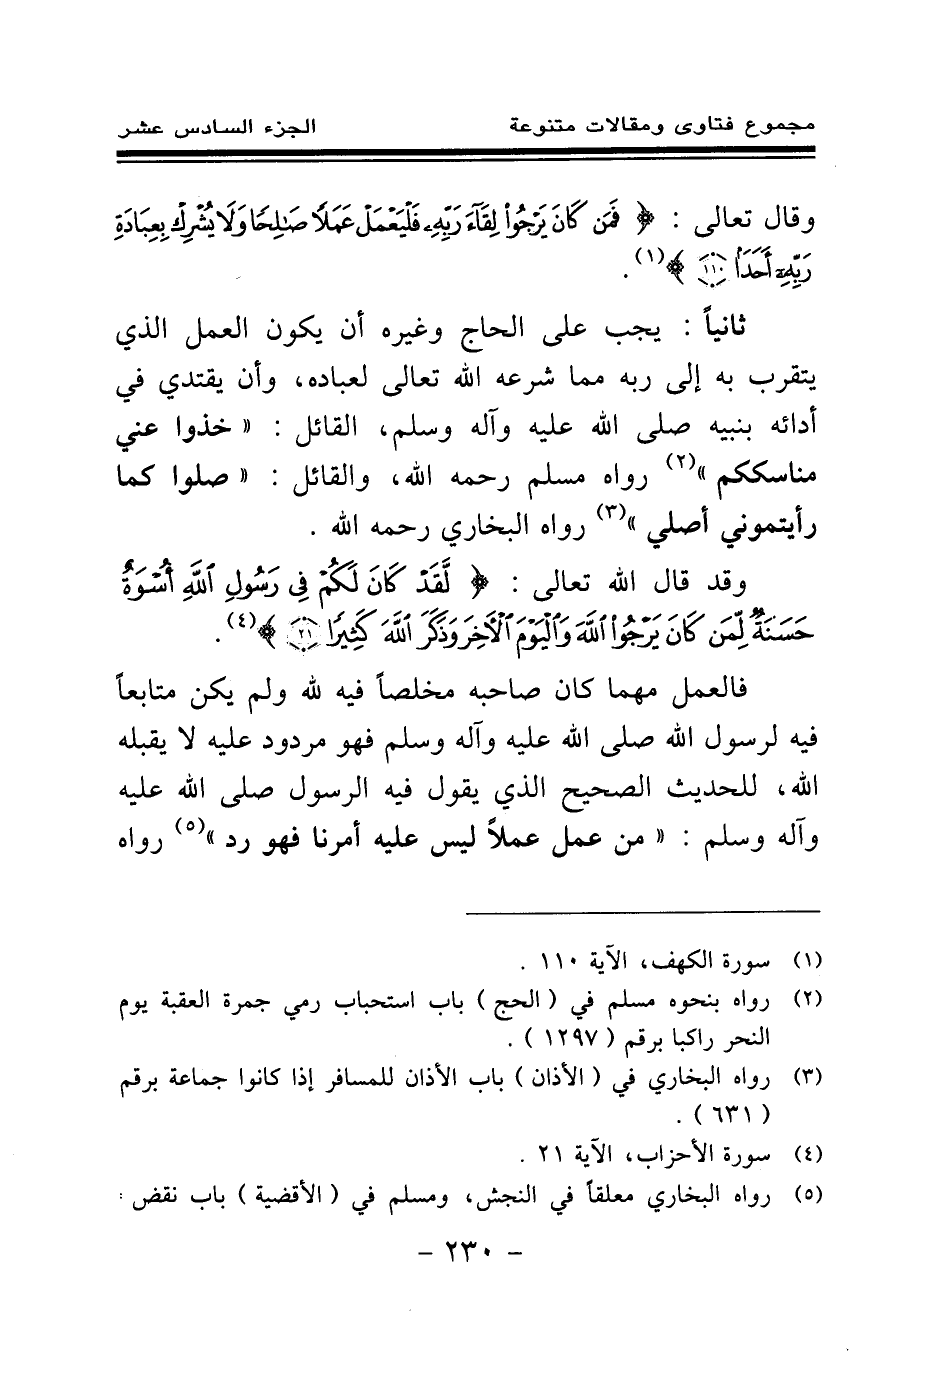 مجموع فتاوى ومقالات متنوعة الجزء السادس عشر
وقال تعالى : ﴿ فَمَن كَانَ يَرْجُوا۟ لِقَآءَ رَبِّهِۦ فَلْيَعْمَلْ عَمَلًا صَٰلِحًا وَلَا يُشْرِكْ بِعِبَادَةِ
رَبِّهِۦٓ أَحَدًۢا ١١٠ ﴾(١).
ثانياً : يجب على الحاج وغيره أن يكون العمل الذي
يتقرب به إلى ربه مما شرعه الله تعالى لعباده، وأن يقتدي في
أدائه بنبيه صلى الله عليه وآله وسلم، القائل : « خذوا عني
مناسككم »(٢) رواه مسلم رحمه الله، والقائل : « صلوا كما
رأيتموني أصلي »(٣) رواه البخاري رحمه الله .
وقد قال الله تعالى : ﴿ لَّقَدْ كَانَ لَكُمْ فِى رَسُولِ ٱللَّهِ أُسْوَةٌ
حَسَنَةٌ لِّمَن كَانَ يَرْجُوا۟ ٱللَّهَ وَٱلْيَوْمَ ٱلْأٓخِرَ وَذَكَرَ ٱللَّهَ كَثِيرًا ٢١ ﴾(٤).
فالعمل مهما كان صاحبه مخلصاً فيه لله ولم يكن متابعاً
فيه لرسول الله صلى الله عليه وآله وسلم فهو مردود عليه لا يقبله
الله، للحديث الصحيح الذي يقول فيه الرسول صلى الله عليه
وآله وسلم : « من عمل عملاً ليس عليه أمرنا فهو رد »(٥) رواه
(١) سورة الكهف، الآية ١١٠ .
(٢) رواه بنحوه مسلم في ( الحج ) باب استحباب رمي جمرة العقبة يوم
النحر راكبا برقم ( ١٢٩٧ ) .
(٣) رواه البخاري في ( الأذان ) باب الأذان للمسافر إذا كانوا جماعة برقم
( ٦٣١ ) .
(٤) سورة الأحزاب، الآية ٢١ .
(٥) رواه البخاري معلقاً في النجش، ومسلم في ( الأقضية ) باب نقض :
- ٢٣٠ -